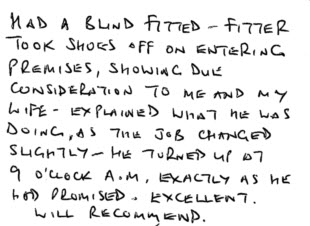 HAD A BLIND FITTED - FITTER
TOOK SHOES OFF ON ENTERING
PREMISES, SHOWING DUE
CONSIDERATION TO ME AND MY
WIFE - EXPLAINED WHAT HE WAS
DOING, AS THE JOB CHANGED
SLIGHTLY - HE TURNED UP AT
9 O'CLOCK A.M, EXACTLY AS HE
HAD PROMISED. EXCELLENT.
WILL RECOMMEND.